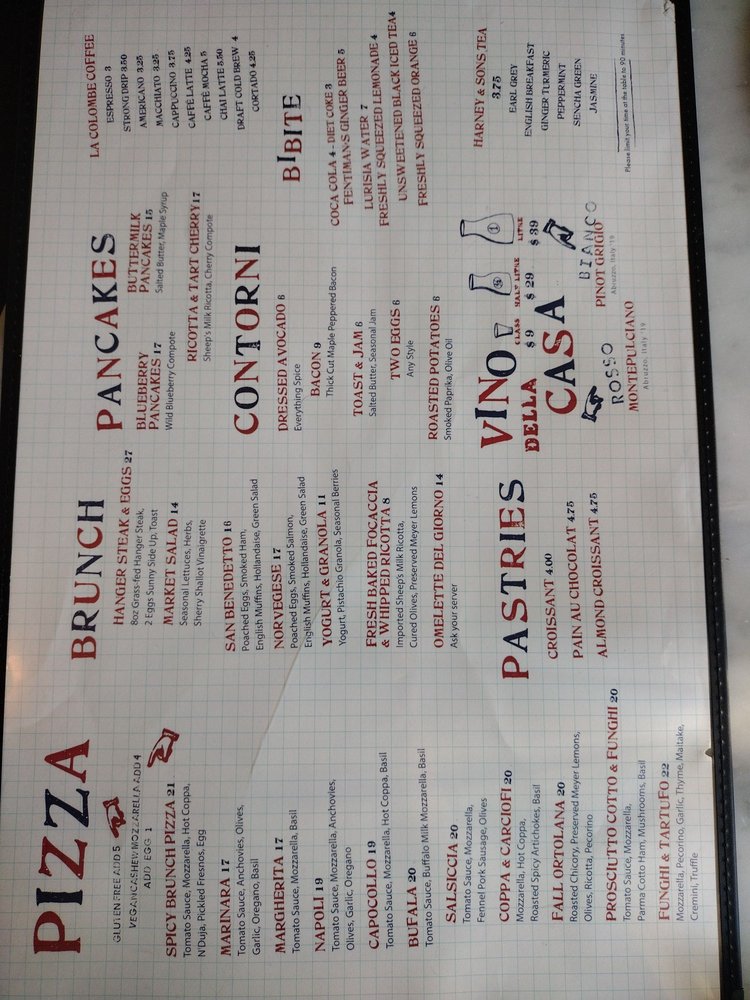 PIZZA
GLUTEN FREE ADD 5
VEGAN CASHEW MOZZARELLA ADD 4
ADD EGG 1
SPICY BRUNCH PIZZA 21
Tomato Sauce, Mozzarella, Hot Coppa,
N'Duja, Pickled Fresnos, Egg
MARINARA 17
Tomato Sauce, Anchovies, Olives,
Garlic, Oregano, Basil
MARGHERITA 17
Tomato Sauce, Mozzarella, Basil
NAPOLI 19
Tomato Sauce, Mozzarella, Anchovies,
Olives, Garlic, Oregano
CAPOCOLLO 19
Tomato Sauce, Mozzarella, Hot Coppa, Basil
BUFALA 20
Tomato Sauce, Buffalo Milk Mozzarella, Basil
SALSICCIA 20
Tomato Sauce, Mozzarella,
Fennel Pork Sausage, Olives
COPPA & CARCIOFI 20
Mozzarella, Hot Coppa,
Roasted Spicy Artichokes, Basil
FALL ORTOLANA 20
Roasted Chicory, Preserved Meyer Lemons,
Olives, Ricotta, Pecorino
PROSCIUTTO COTTO & FUNGHI 20
Tomato Sauce, Mozzarella,
Parma Cotto Ham, Mushrooms, Basil
FUNGHI & TARTUFO 22
Mozzarella, Pecorino, Garlic, Thyme, Maitake,
Cremini, Truffle
BRUNCH
HANGER STEAK & EGGS 27
8oz Grass-fed Hanger Steak,
2 Eggs Sunny Side Up, Toast
MARKET SALAD 14
Seasonal Lettuces, Herbs,
Sherry Shallot Vinaigrette
SAN BENEDETTO 16
Poached Eggs, Smoked Ham,
English Muffins, Hollandaise, Green Salad
NORVEGESE 17
Poached Eggs, Smoked Salmon,
English Muffins, Hollandaise, Green Salad
YOGURT & GRANOLA 11
Yogurt, Pistachio Granola, Seasonal Berries
FRESH BAKED FOCACCIA
& WHIPPED RICOTTA 8
Imported Sheep's Milk Ricotta,
Cured Olives, Preserved Meyer Lemons
OMELETTE DEL GIORNO 14
Ask your server
PASTRIES
CROISSANT 4.00
PAIN AU CHOCOLAT 4.75
ALMOND CROISSANT 4.75
PANCAKES
BLUEBERRY
PANCAKES 17
Wild Blueberry Compote
BUTTERMILK
PANCAKES 15
Salted Butter, Maple Syrup
RICOTTA & TART CHERRY 17
Sheep's Milk Ricotta, Cherry Compote
CONTORNI
DRESSED AVOCADO 6
Everything Spice
BACON 9
Thick Cut Maple Peppered Bacon
TOAST & JAM 6
Salted Butter, Seasonal Jam
TWO EGGS 6
Any Style
ROASTED POTATOES 6
Smoked Paprika, Olive Oil
VINO
DELLA
CASA
GLASS HALF LITRE LITRE
$ 9 $ 29 $ 39
ROSSO
MONTEPULCIANO
Abruzzo, Italy '19
BIANCO
PINOT GRIGIO
Abruzzo, Italy '19
LA COLOMBE COFFEE
ESPRESSO 3
STRONG DRIP 3.50
AMERICANO 3.25
MACCHIATO 3.25
CAPPUCCINO 3.75
CAFFÈ LATTE 4.25
CAFFÈ MOCHA 5
CHAI LATTE 5.50
DRAFT COLD BREW 4
CORTADO 4.25
BIBITE
COCA COLA 4 - DIET COKE 3
FENTIMAN'S GINGER BEER 5
LURISIA WATER 7
FRESHLY SQUEEZED LEMONADE 4
UNSWEETENED BLACK ICED TEA 4
FRESHLY SQUEEZED ORANGE 6
HARNEY & SONS TEA
3.75
EARL GREY
ENGLISH BREAKFAST
GINGER TURMERIC
PEPPERMINT
SENCHA GREEN
JASMINE
Please limit your time at the table to 90 minutes